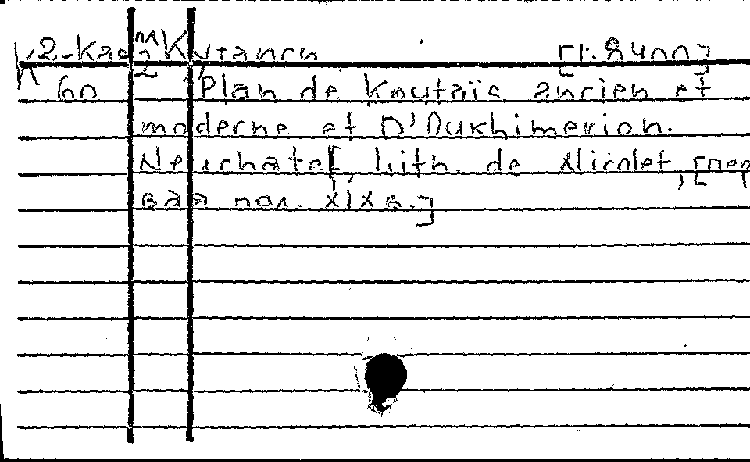 К 2-Кав Кутаиси [1:8400]
60 2 Plan de Koutaïs ancien et
moderne et D'Oukhimerion.
Neuchatel, Lith. de Nicolet, [пер
вая пол. XIX в.]